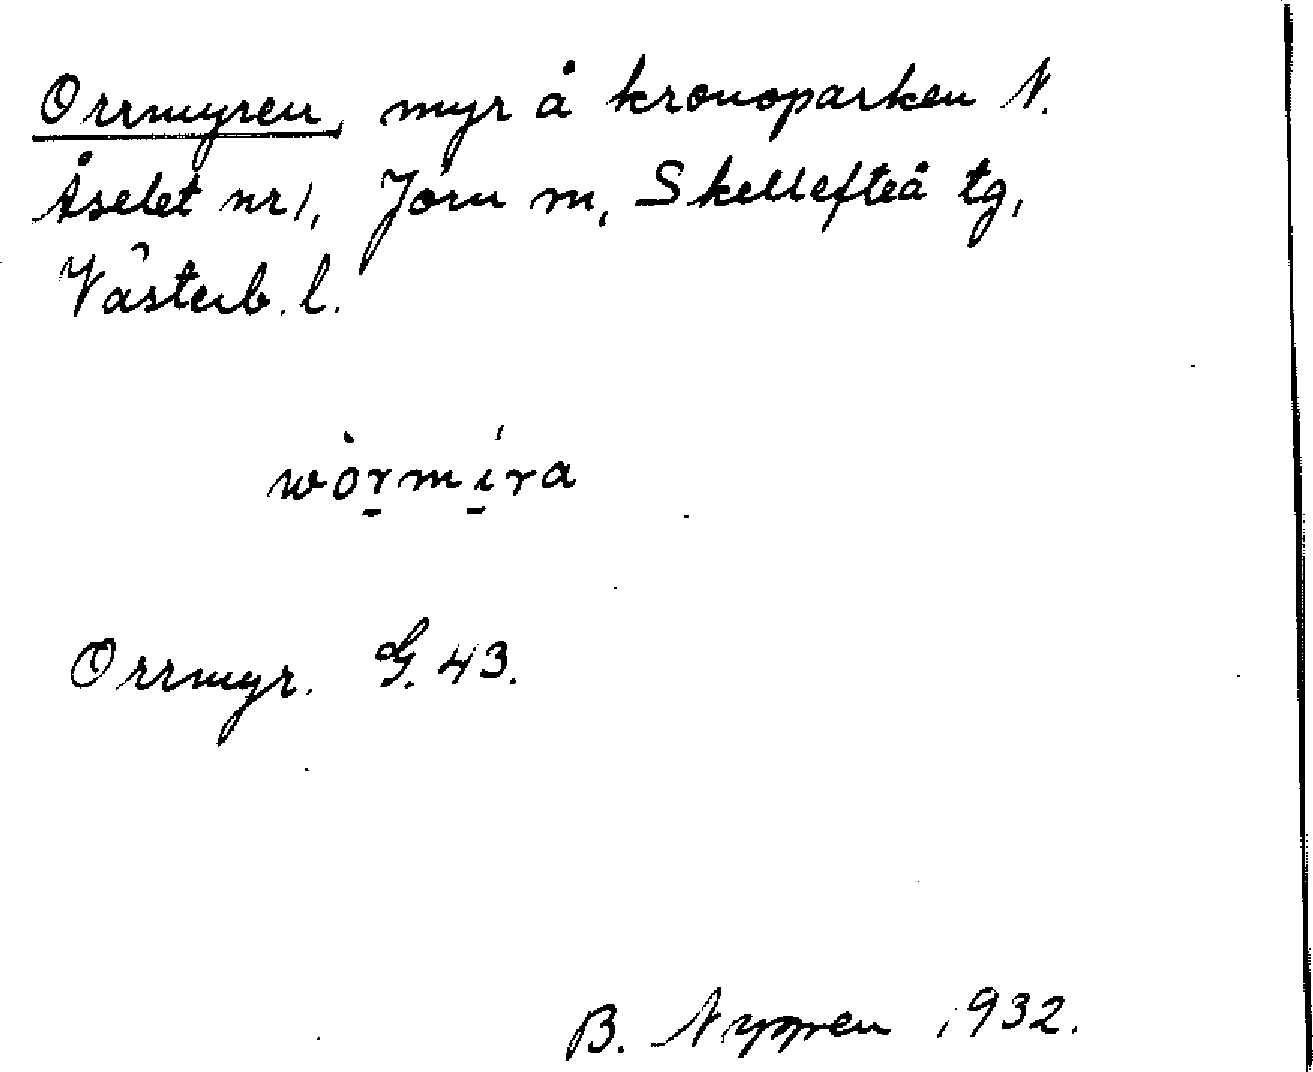 Orrmyren, myr å kronoparken N.
Åselet nr 1, Jörn m, Skellefteå tg,
Västerb. l.
wòrmíra
Orrmyr. G. 43.
B. Nygren 1932.